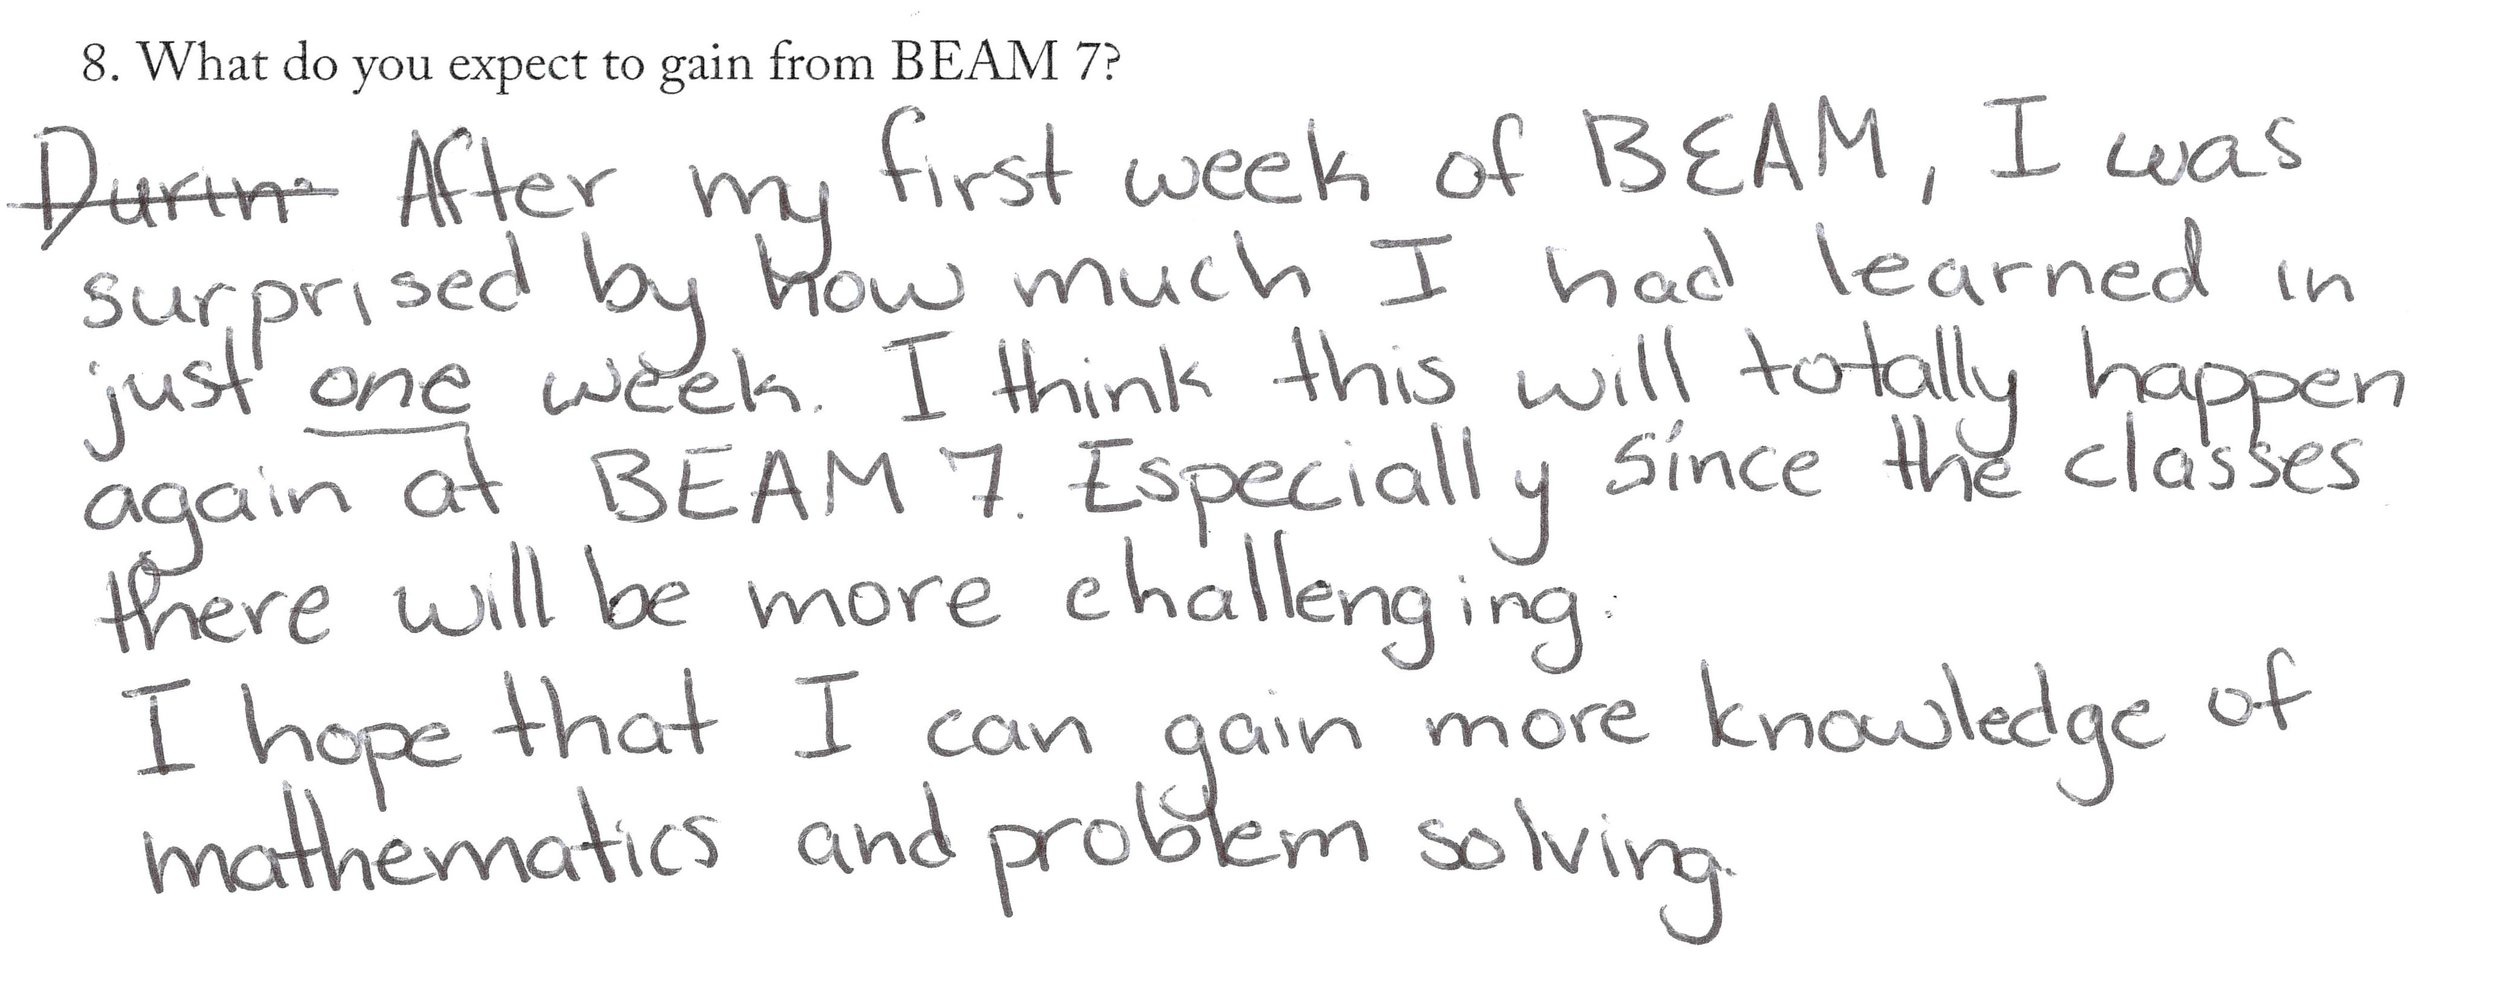 8. What do you expect to gain from BEAM 7?
Durin After my first week of BEAM, I was
surprised by how much I had learned in
just one week. I think this will totally happen
again at BEAM 7. Especially since the classes
there will be more challenging.
I hope that I can gain more knowledge of
mathematics and problem solving.